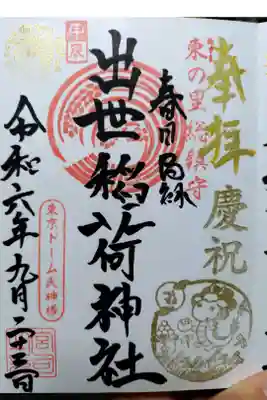 奉拝 慶祝
東の里総鎮守
春日局縁
出世稲荷神社
甲辰
東京ドーム氏神様
令和六年九月二十三日